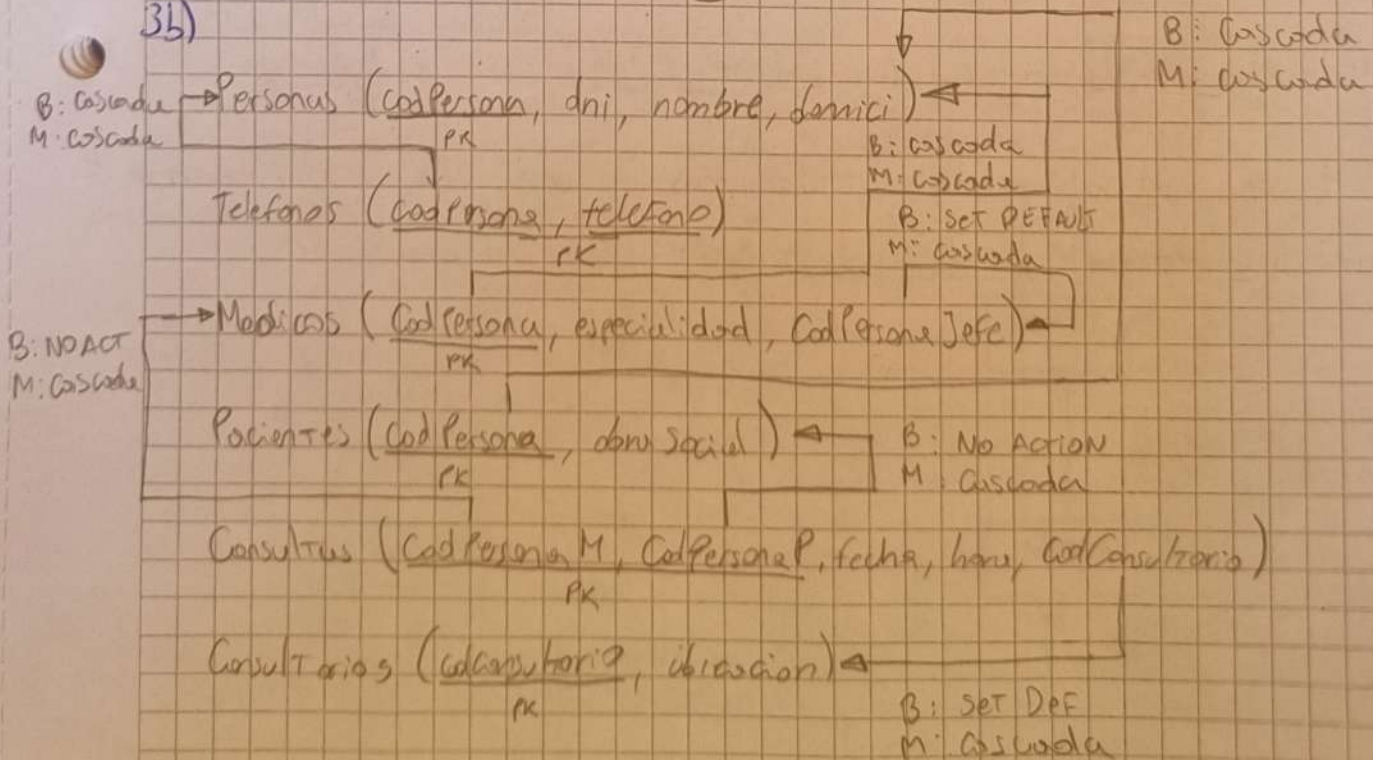 3b)
B: Cascada
M: cascada
B: Cascada
M: cascada
Personas (codPersona, dni, nombre, domici)
PK
B: cascada
M: cascada
Telefonos (codPersona, telefono)
PK
B: SET DEFAULT
M: cascada
Medicos (CodPersona, especialidad, CodPersonaJefe)
PK
B: NO ACT
M: Cascada
Pacientes (CodPersona, obra social)
PK
B: NO ACTION
M: Cascada
Consultas (CodPersonaM, CodPersonaP, fecha, hora, CodConsultorio)
PK
Consultorios (codConsultorio, ubicacion)
PK
B: SET DEF
M: Cascada